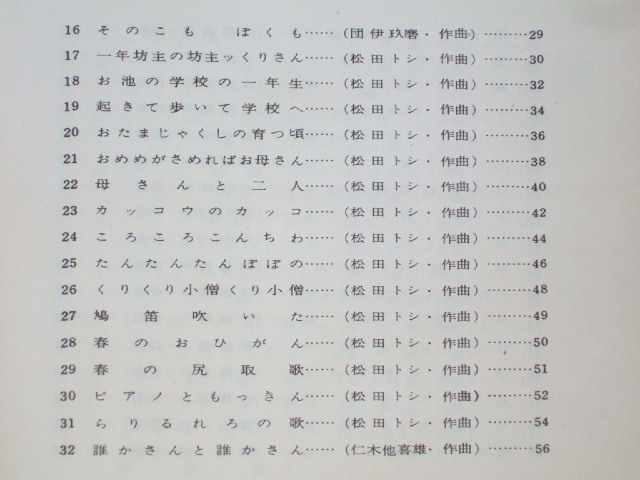 16 そのこも ぼくも……(団伊玖磨・作曲)………29
17 一年坊主の坊主ッくりさん……(松田トシ・作曲)………30
18 お池の学校の一年生……(松田トシ・作曲)………32
19 起きて歩いて学校へ……(松田トシ・作曲)………34
20 おたまじゃくしの育つ頃……(松田トシ・作曲)………36
21 おめめがさめればお母さん……(松田トシ・作曲)………38
22 母さんと二人……(松田トシ・作曲)………40
23 カッコウのカッコ……(松田トシ・作曲)………42
24 ころころこんちわ……(松田トシ・作曲)………44
25 たんたんたんぽぽの……(松田トシ・作曲)………46
26 くりくり小僧くり小僧……(松田トシ・作曲)………48
27 鳩笛吹いた……(松田トシ・作曲)………49
28 春のおひがん……(松田トシ・作曲)………50
29 春の尻取歌……(松田トシ・作曲)………51
30 ピアノともっきん……(松田トシ・作曲)………52
31 らりるれろの歌……(松田トシ・作曲)………54
32 誰かさんと誰かさん……(仁木他喜雄・作曲)………56